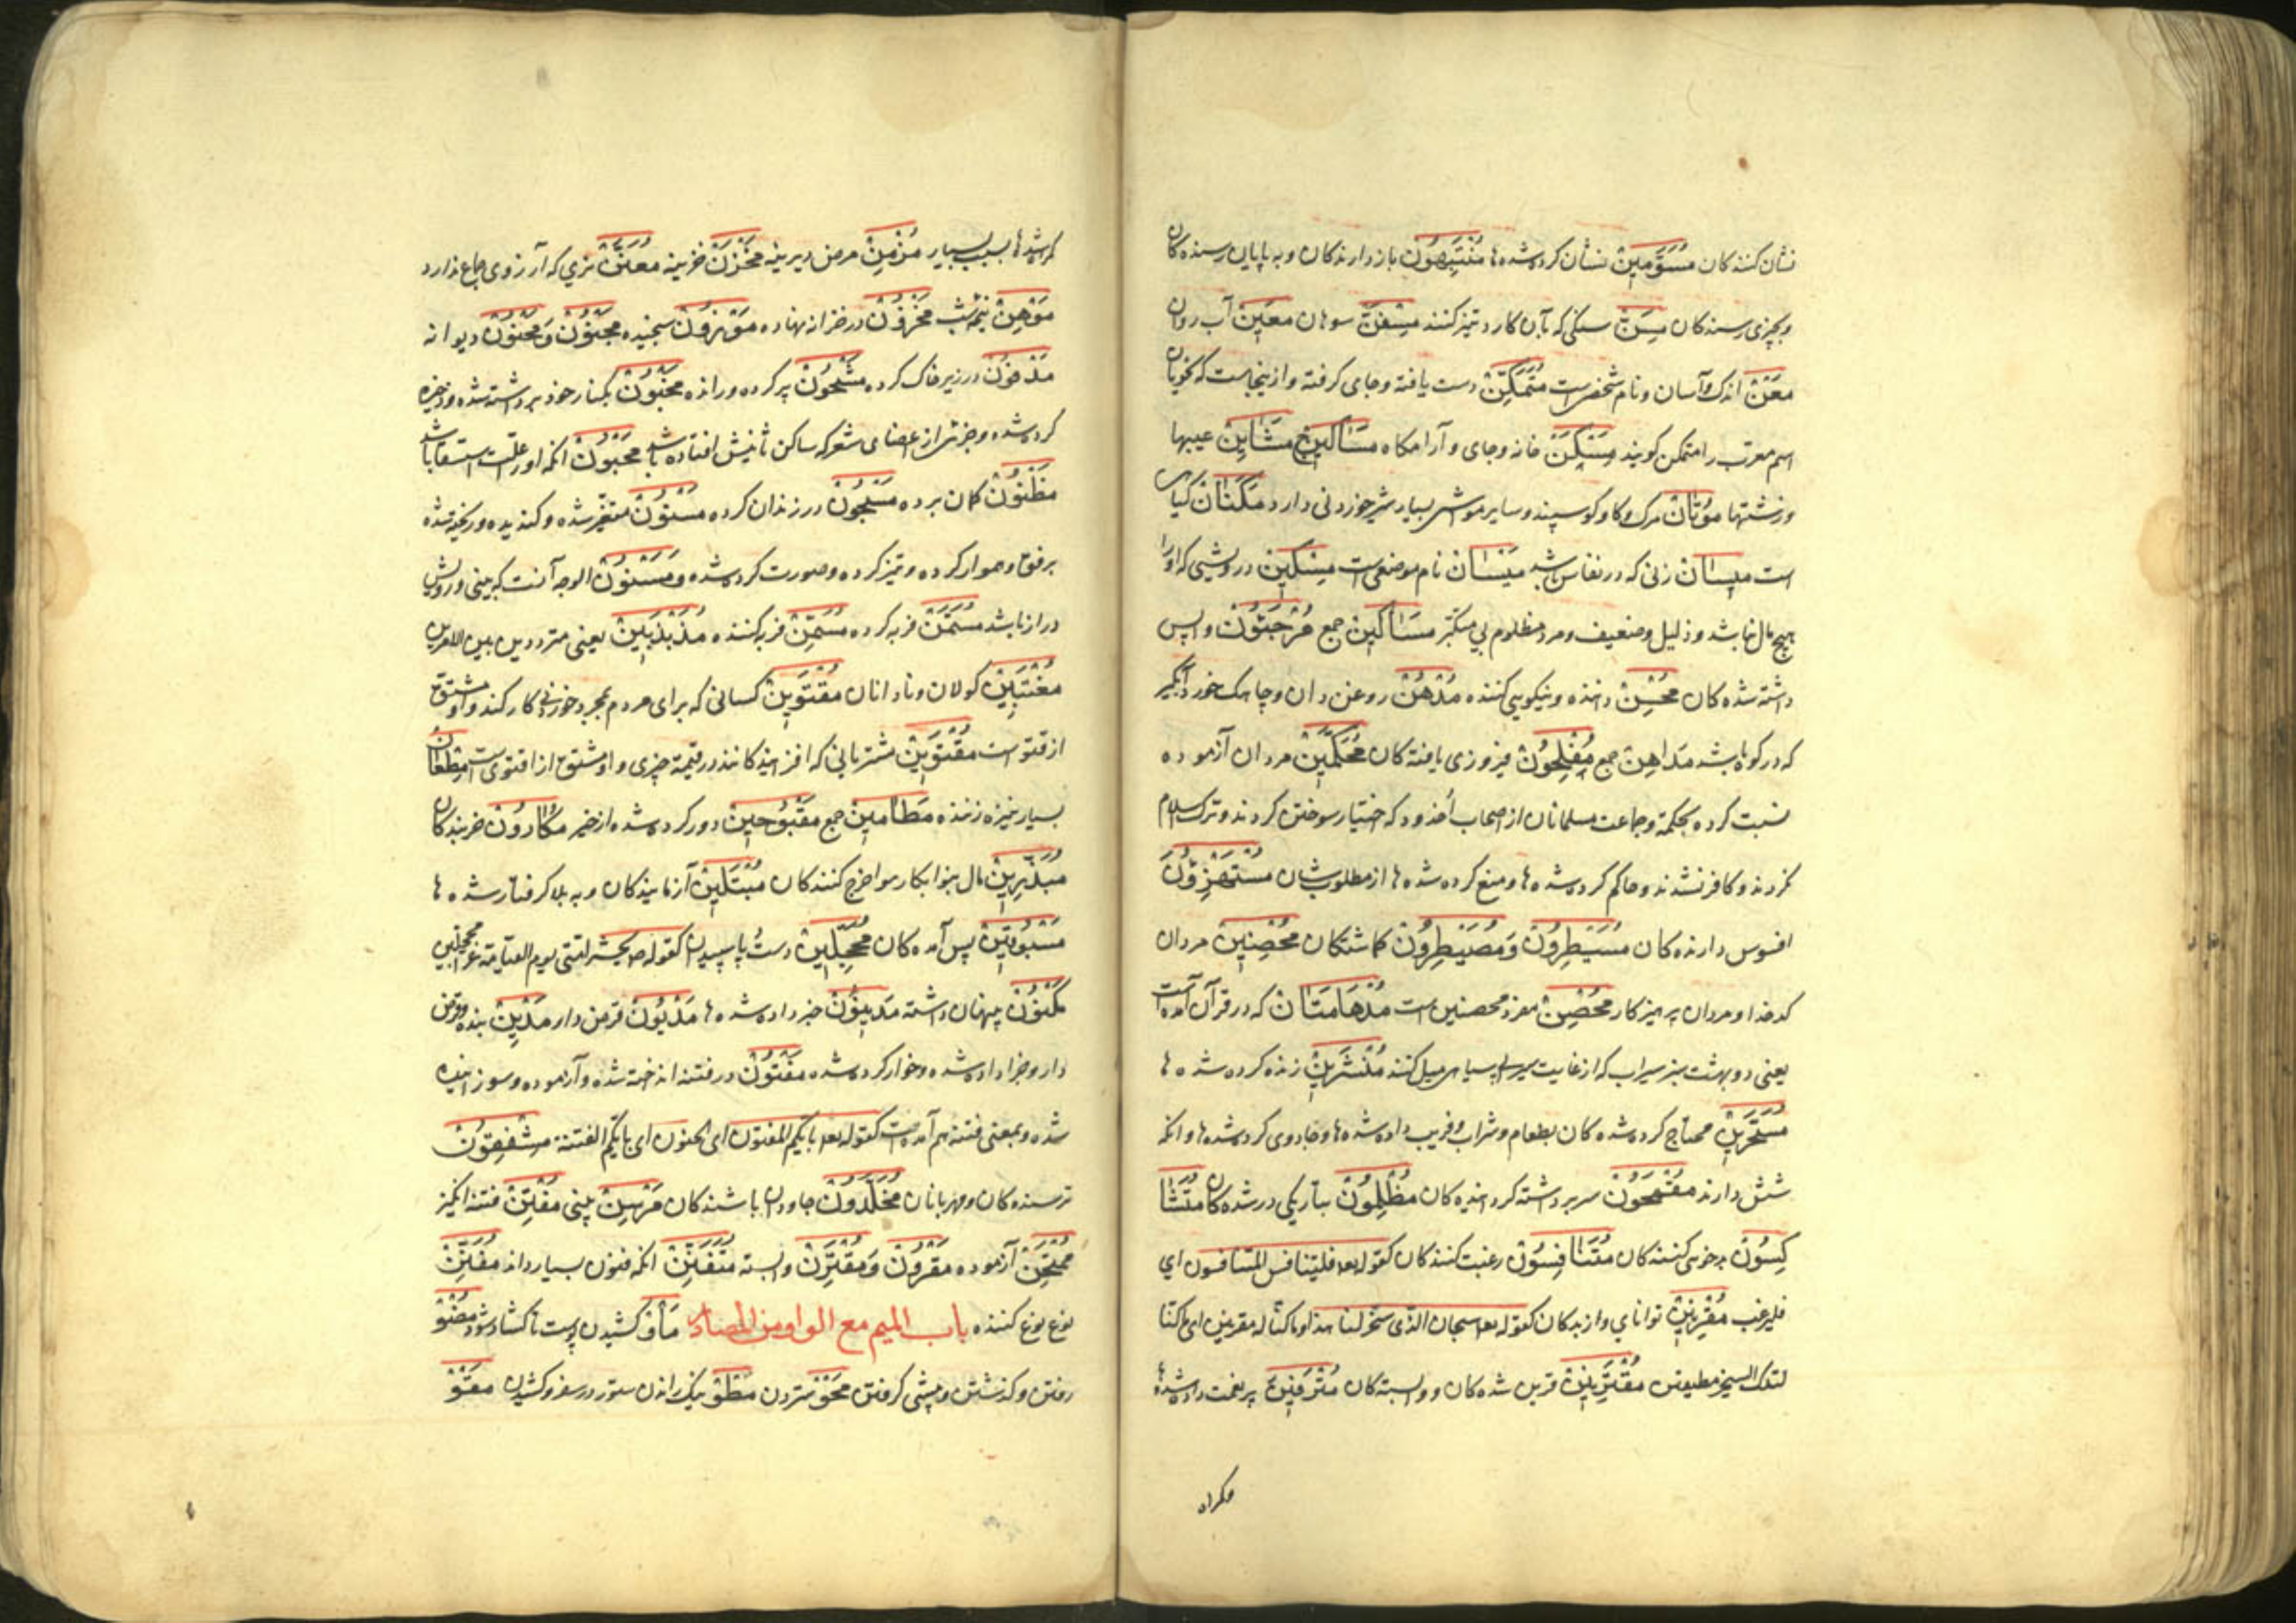 نشان کنندکان مُسَوَّمِینْ نشان کرده شده ها مُنْتَهُونْ بازدارندکان و بپایان رسنده کان
و بچیزی رسندکان مِسَنّْ سنکی که بآن کارد تیز کنند مِسْفَنْ سوهان مَعِینْ آب روان
مَعْنْ اندک و آسان و نام شخصی است مُتَمَکِّنْ دست یافته و جای کرفته و از ینجاست که نحویان
اسم معرب را متمکن کویند مَسْکَنْ خانه و جای و آرامکاه مَسَاکِنْ ج مَشَایِنْ عیبها
و زشتیها مَوْتَانْ مرک و کاو کوسپند و سایر مواشی بسیار شیر خوردنی دارد مَکْنَانْ کیاهی
است مَیْسَانْ زنی که در نفاس باشد مَیْسَانْ نام موضعی است مِسْکِینْ درویشی که او را
هیچ مال نباشد و ذلیل و ضعیف و مرد مظلوم بی متکبر مَسَاکِینْ جمع مُرْجَئُونْ واپس
داشته شده کان مُحْسِنْ داننده و نیکویی کننده مُدْهُنْ روغن دان و چاهک خورد آبکیر
که در کوه باشد مَدَاهِنْ جمع مُفْلِحُونْ فیروزی یافته کان مُحَکَّمِینْ مردان آزموده
نسبت کرده بحکمة و جماعت مسلمانان از اصحاب اخدود که اختیار سوختن کردند و ترک اسلام
نکردند و کافر نشدند و حاکم کرده شده ها و منع کرده شده ها از مطلوب شان مُسْتَهْزِؤُنَ
افسوس دارنده کان مُسَیْطِرُونْ وَمُصَیْطِرُونْ کماشتکان مُحْصِنِینْ مردان
کدخدا و مردان پرهیزکار مُحْصِنْ مفرد محصنین است مُدْهَامَّتَانْ که در قرآن آمده است
یعنی دو بهشت سبز سیراب که از غایت سیرابی بسیاهی میل کنند مُنْشَرِینْ زنده کرده شده ها
مُسَحَّرِینْ محتاج کرده شده کان بطعام و شراب و فریب داده شده ها و جادوی کرده شده ها و انکه
شش دارند مُقْمَحُونْ سر برداشته کردانیده کان مُظْلِمُونْ بتاریکی در شده کان مُتَشَا
کِسُونْ بدخویی کنندکان مُتَنَافِسُونْ رغبت کنندکان کقوله تعا فلیتنافس المتنافسون ای
فلیرغب مُقْرِنِینْ توانایی دارندکان کقوله تعا سبحان الذی سخر لنا هذا و ما کنا له مقرنین ای ما کنا
لتلک السیخر مطیقین مُقْتَرِنِینْ قرین شده کان و وابسته کان مُتْرَفِینْ پر نعمت داده شده ها
کرشدها بسبب بسیار مُزْمِنْ مرض دیرینه مَخْزَنْ خزینه مُعَنَّنْ نری که آرزوی جماع ندارد
مَوْهِنْ نیم شب مَخْزُونْ در خزانه نهاده مَوْزُونْ سنجیده مَجْنُونْ وَمَحْنُونْ دیوانه
مَدْفُونْ در زیر خاک کرده مَشْحُونْ پر کرده و رانده مَخْبُونْ بکنار خود برداشته شده و ذخیره
کرده شده و جزئی از اعضای شعر که ساکن ثانیش افتاده باشد مَحْبُونْ انکه او را علت استسقا باشد
مَظْنُونْ کمان برده مَسْجُونْ در زندان کرده مَسْنُونْ متغیر شده و کندیده و ریخته شده
برفق و هموار کرده و تیز کرده و صورت کرده شده و مَسْنُونُ الوجه آنست که بینی و رویش
دراز باشد مُسَمَّنْ فربه کرده مُسَمِّنْ فربه کننده مُذَبْذَبِینْ یعنی مترددین بین الامرین
مُغْتَبِنِینْ کولان و نادانان مُقْتَوِینْ کسانی که برای مردم بمجرد خوردنی کار کنند و او مشتق
از قتو است مُقْتَوِیِنْ مشتریانی که افزایندکانند در قیمة چیزی و او مشتق از اقتوی است مِطْعَانْ
بسیار نیزه زننده مَطَاعِینْ جمع مَقْبُوحِینْ دور کرده شده از خیر مُکَارُونْ خربندکان
مُبَذِّرِینْ مال بنوابکار سوا خرج کنندکان مُبْتَلِینْ آزمایندکان و به بلا کرفتار شده ها
مَسْبُوقِینْ پس آمده کان مُحَجَّلِینْ دست و پا سپیدان کقوله ص یحشر امتی یوم القیامة غر محجلین
مَکْنُونْ پنهان داشته مَدِینُونْ جزا داده شده ها مَدْیُونْ قرض دار مَدِینْ بنده و قرض
دار و جزا داده شده و خوار کرده شده مَفْتُونْ در فتنه انداخته شده و آزموده و سوزانیده
شده و بمعنی فتنه هم آمده است کقوله تعا بایکم المفتون ای الجنون ای بایکم الفتنة مُشْفِقُونْ
ترسنده کان و مهربانان مُخَلَّدُونْ جاودان باشندکان مَرْسِنْ بینی مُفْتِنْ فتنه انکیز
مُمْتَحَنْ آزموده مَقْرُونْ وَمُقْتَرِنْ وابسته مُتَفَنِّنْ انکه فنون بسیار داند مُفَنِّنْ
نوع نوع کننده باب المیم مع الواو من المصادر مَأْوْ کشیدن پوست تا کشاد شود مُضُوّْ
رفتن و کذشتن و پیشی کرفتن مَحْوْ ستردن مَطْوْ نیک راندن ستور در سفر و کشیدن مَعْوْ